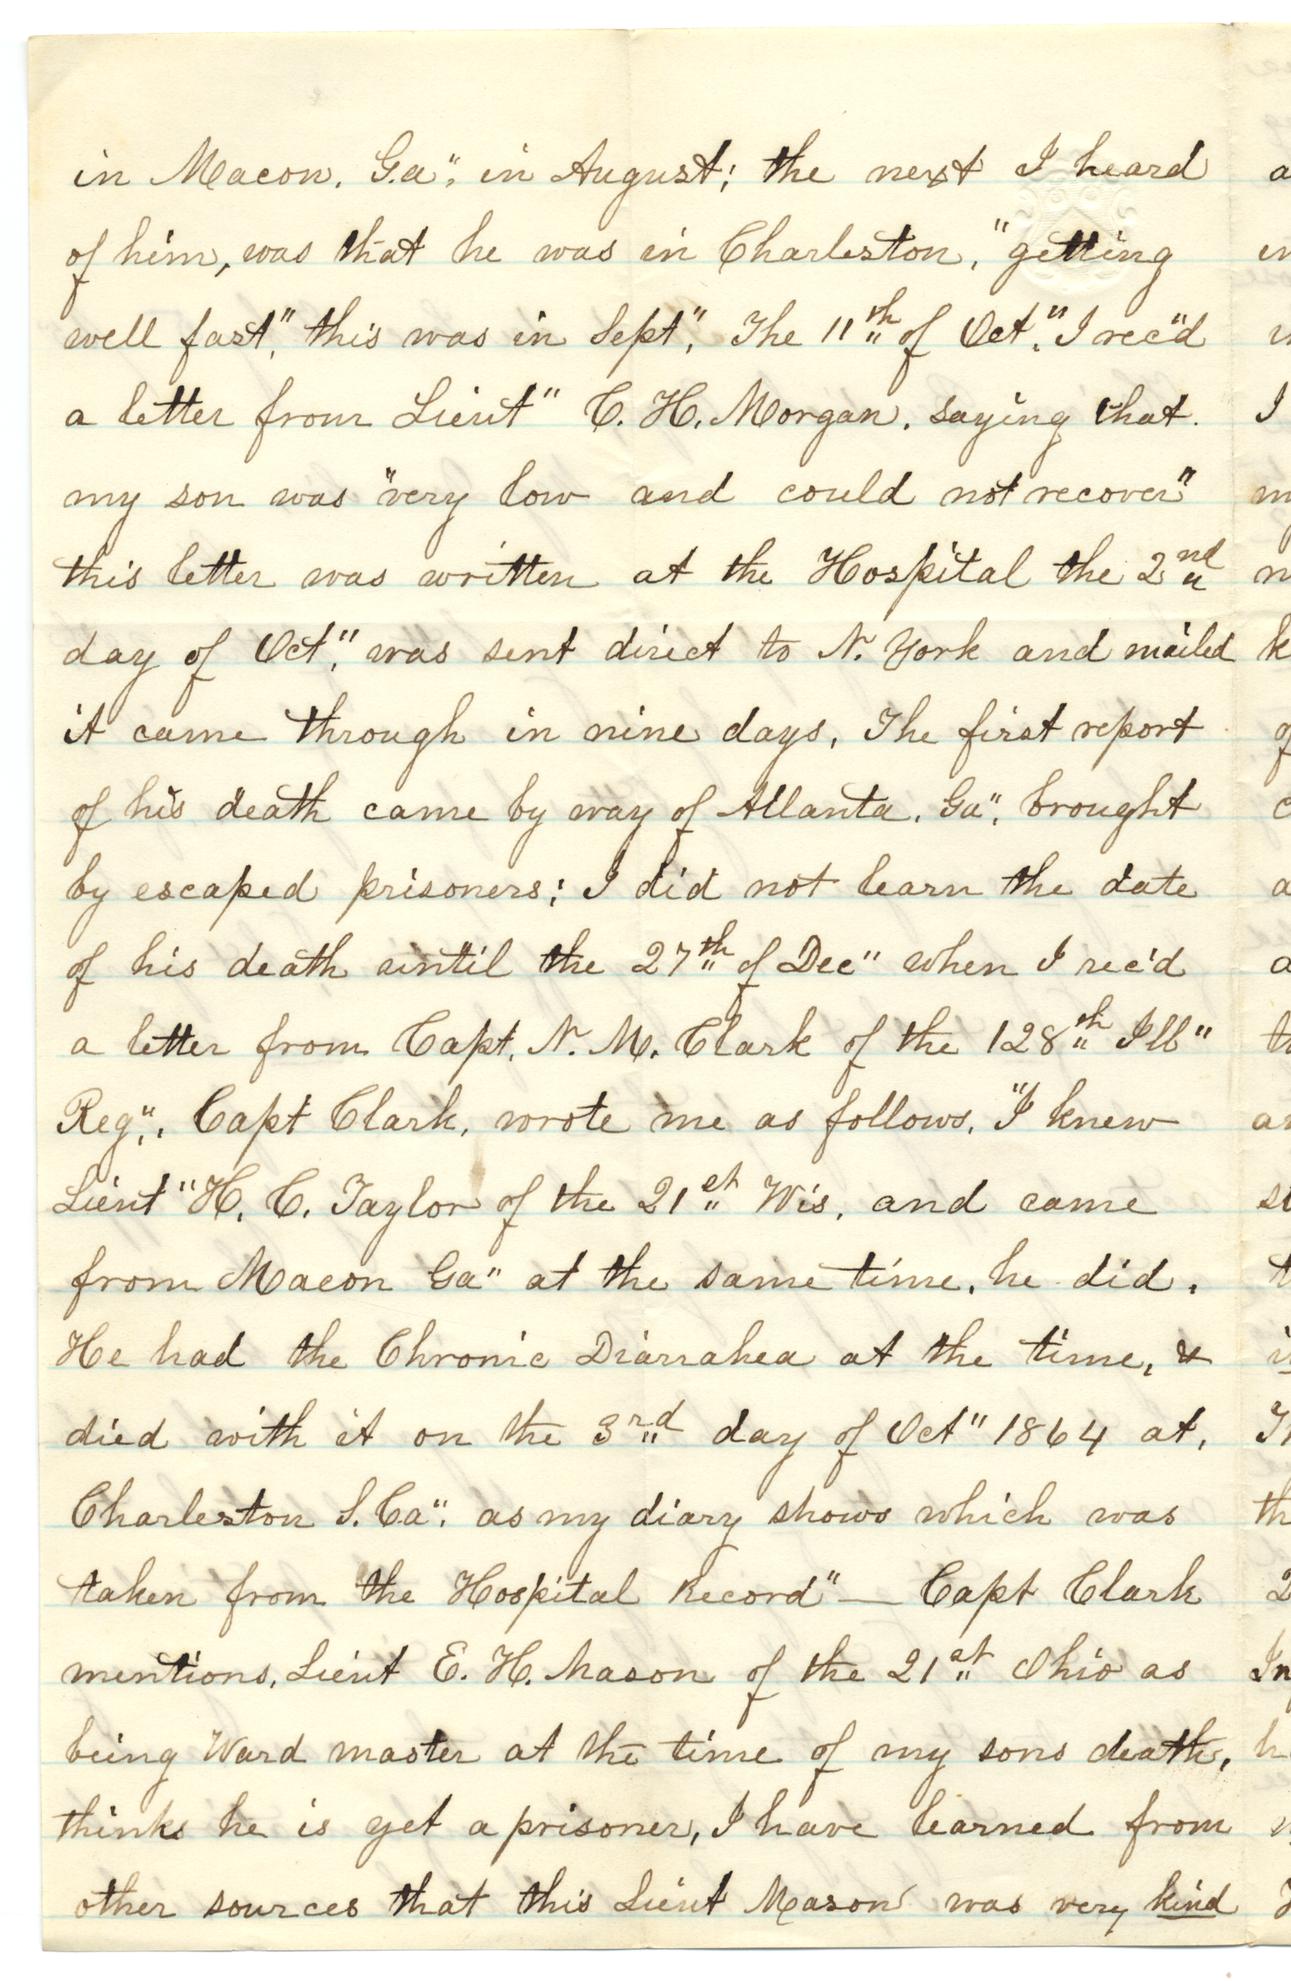 in Macon, G.a", in August; the next I heard
of him, was that he was in Charleston, "getting
well fast", this was in Sept", The 11th of Oct", I rec'd
a letter from Lieut" C. H. Morgan, saying that
my son was "very low and could not recover"
this letter was written at the Hospital the 2nd
day of Oct", was sent direct to N. York and mailed
it came through in nine days, The first report
of his death came by way of Atlanta, Ga", brought
by escaped prisoners; I did not learn the date
of his death until the 27th of Dec" when I rec'd
a letter from Capt. N. M. Clark of the 128th Ill"
Reg"., Capt Clark, wrote me as follows, "I knew
Lieut" H. C. Taylor of the 21st Wis, and came
from Macon Ga" at the same time, he did.
He had the Chronic Diarrahea at the time, &
died with it on the 3rd day of Oct" 1864 at,
Charleston S. Ca". as my diary shows which was
taken from the Hospital Record" — Capt Clark
mentions, Lieut E. H. Mason of the 21st Ohio as
being Ward master at the time of my sons death,
thinks he is yet a prisoner, I have learned from
other sources that this Lieut Mason was very kind